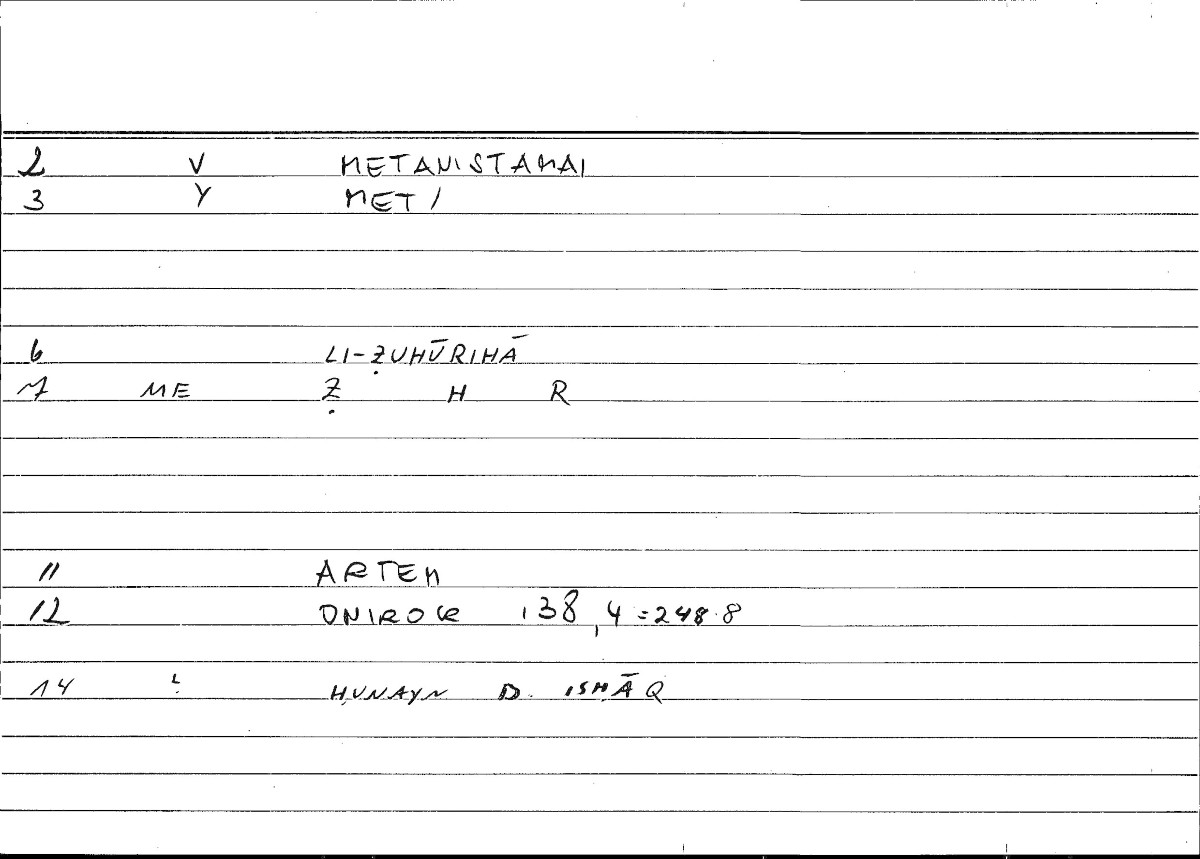 2 V METANISTAMAI
3 Y MET/
6 LI-ẒUHŪRIHĀ
7 ME Ẓ H R
11 ARTEM
12 ONIROCR 138,4=248.8
14 ḤUNAYN B. ISḤĀQ